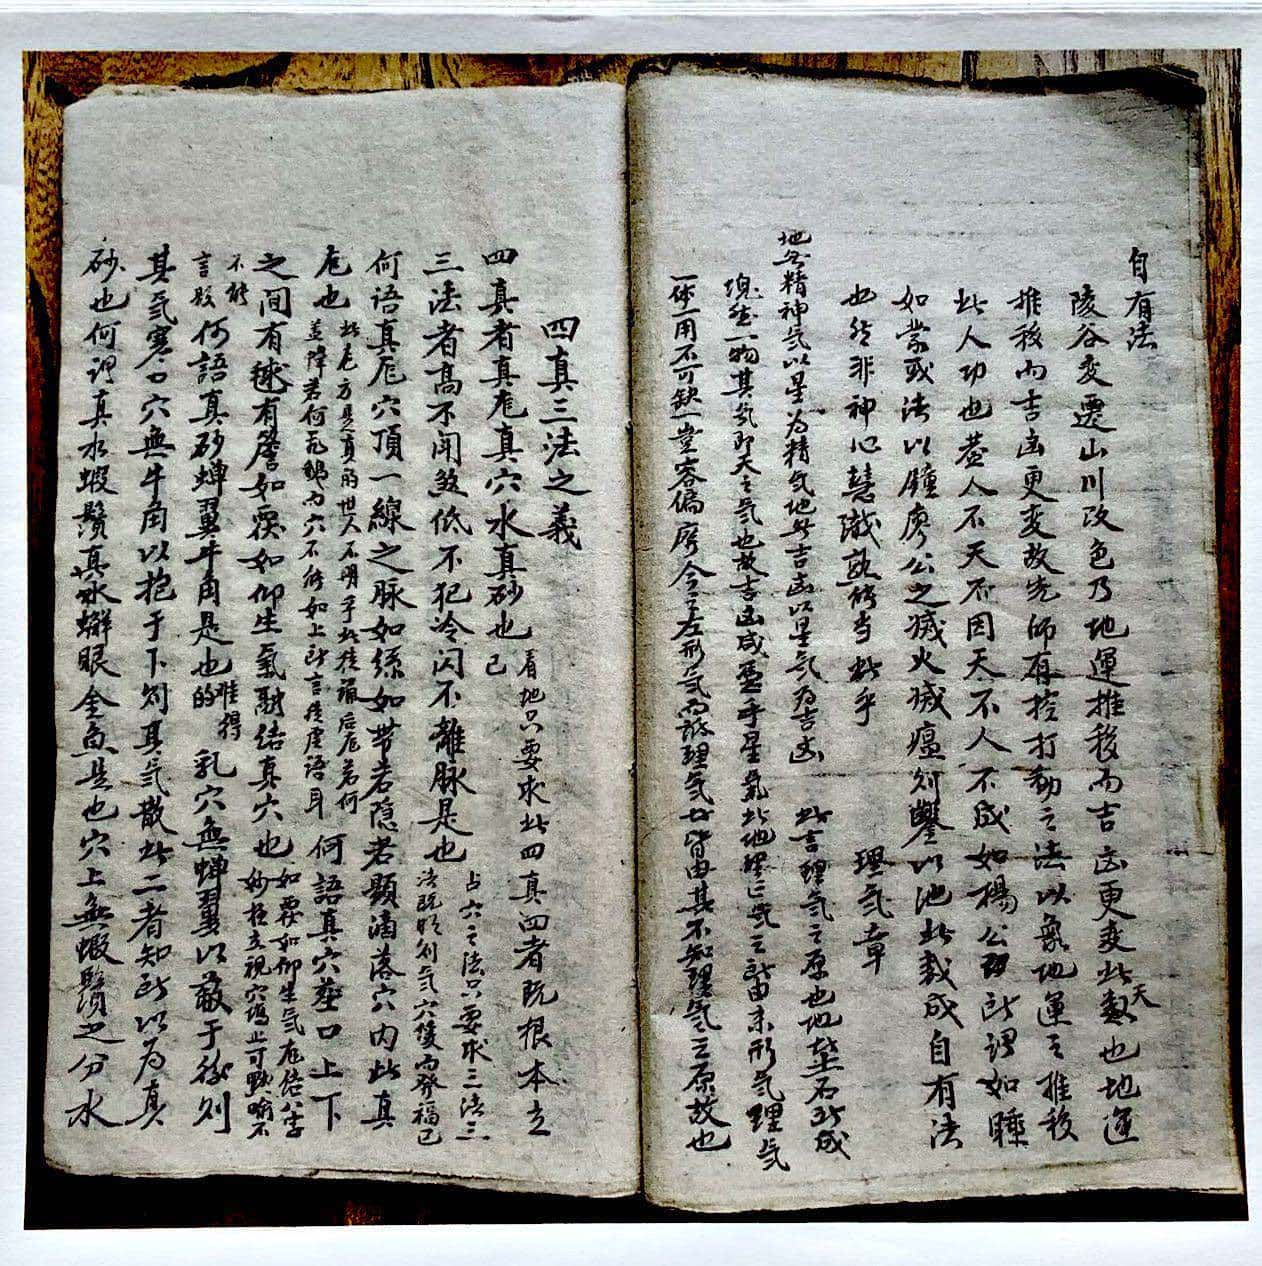 自有法
陵谷变遷山川改色乃地運推移而吉凶更变此天数也地運
推移而吉凶更变故先師有控打動之法以奪地運之推移
此人功也蓋人不天不因天不人不成如楊公所謂如瞳
如蒙或法以鐘廖公之滅火滅瘟則鑿以池此裁成自有法
也然非神心慧識熟能当此乎
理気章
地無精神気以星为精気地無吉凶以星気为吉凶
此言理気之原也地堃石所成
塊然一物其気即天之気也故吉凶咸憑乎星氣此地理之気之所由来形気理気
一体一用不可缺一豈容偏廢今之左形気而詆理気者皆由其不知理気之原故也
四真三法之義
四真者真龙真穴水真砂也已
看地只要求此四真四者既根本立
三法者高不闻煞低不犯冷闪不離脉是也
占穴之法只要求三法三
法既明則気穴隻而發福已
何語真龙穴頂一線之脉如絲如带若隐若顯滴落穴内此真
龙也
此龙方是真的世人不明乎此徒诵后龙若何
盖障若何龙雖而穴不能如上所言徒虚語耳
何語真穴蓋口上下
之间有毬有簷如窝如仰生氣融结真穴也
如窝如仰生気居結公字
妙在立視穴塲止可默喻不
不能
言殁
何語真砂蝉翼牛角是也
难得
的
乳穴無蝉翼以蔽于後則
其気寒口穴無牛角以抱于下則其気散此二者知所以为真
砂也何謂真水蝦鬚真水蠏眼金魚是也穴上無蝦鬚之分水